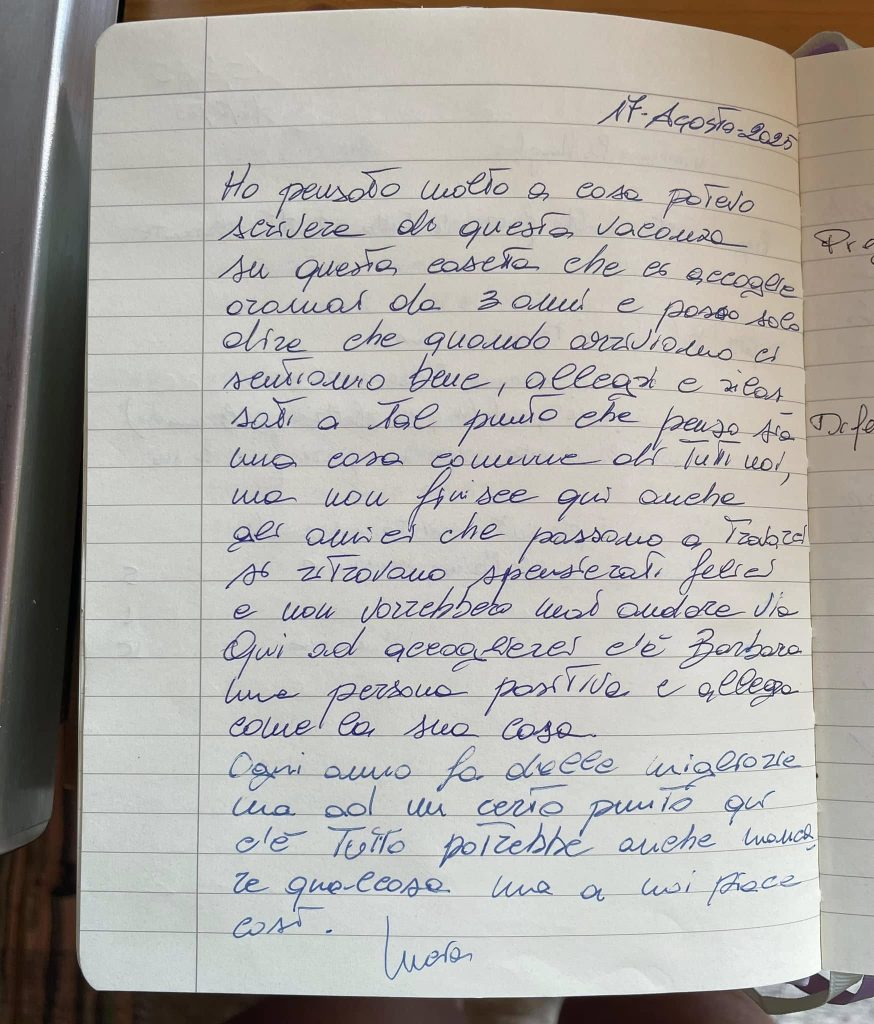 17-Agosto-2025
Ho pensato molto a cosa potevo
scrivere di questa vacanza
su questa casetta che ci accoglie
oramai da 3 anni e posso solo
dire che quando arriviamo ci
sentiamo bene, allegri e rilas
sati a tal punto che penso sia
una cosa comune di tutti noi,
ma non finisce qui anche
gli amici che passano a trovarci
si ritrovano spensierati felici
e non vorrebbero mai andare via
Qui ad accoglierci c'è Barbara
una persona positiva e allegra
come la sua casa.
Ogni anno fa delle migliorie
ma ad un certo punto qui
c'è tutto potrebbe anche manca
re qualcosa ma a noi piace
così.